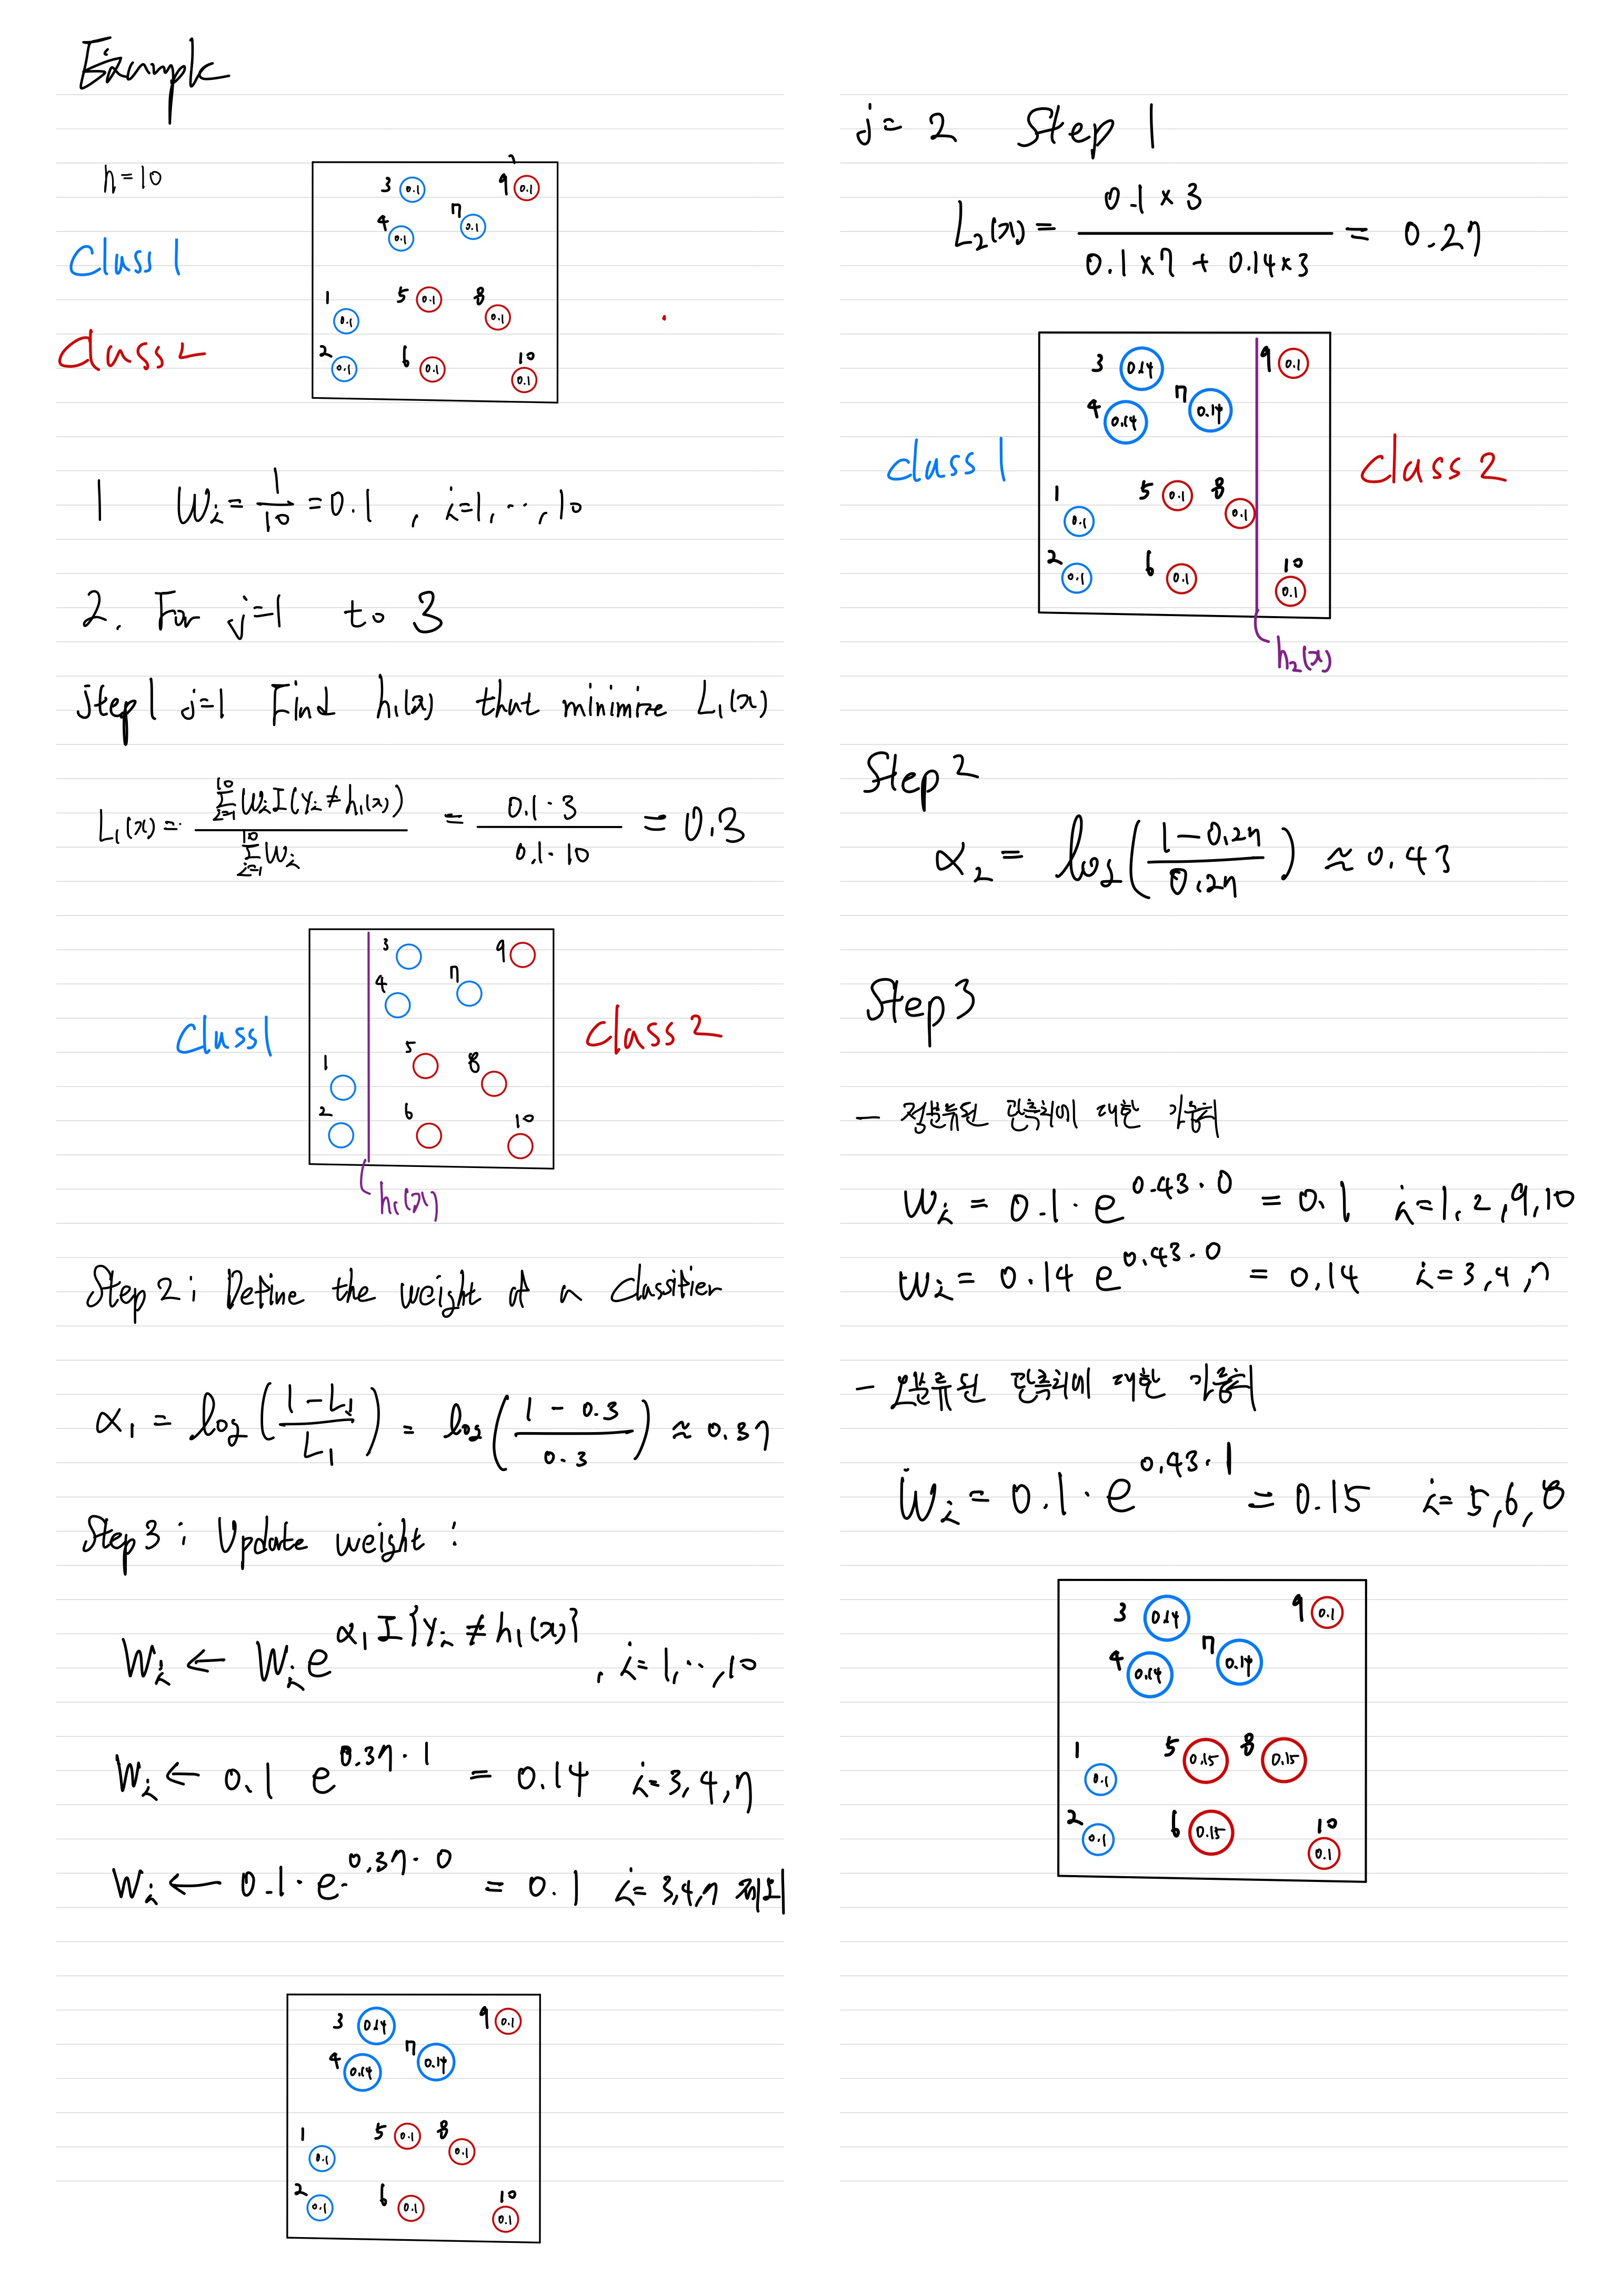 Example
n=10
3 0.1 9 0.1
4 0.1 7 0.1
Class 1
1 0.1 5 0.1 8 0.1
Class 2
2 0.1 6 0.1 10 0.1
1 Wi = 1/10 = 0.1 , i=1, ..., 10
2. For j=1 to 3
Step 1 j=1 Find h₁(x) that minimize L₁(x)
L₁(x) = Σ_{i=1}^{10} Wi I(Yi ≠ h₁(x)) / Σ_{i=1}^{10} Wi = 0.1 · 3 / 0.1 · 10 = 0.3
3 9
4 7
Class 1 Class 2
1 5 8
2 6 10
h₁(x)
Step 2 ; Define the weight of a Classifier
α₁ = log((1-L₁)/L₁) = log((1 - 0.3)/0.3) ≈ 0.37
Step 3 ; Update weight :
Wi ← Wi e^{α₁ I{Yi ≠ h₁(x)}} , i= 1, ..., 10
Wi ← 0.1 e^{0.37 · 1} = 0.14 i= 3, 4, 7
Wi ← 0.1 · e^{0.37 · 0} = 0.1 i= 3,4,7 제외
3 0.14 9 0.1
4 0.14 7 0.14
1 0.1 5 0.1 8 0.1
2 0.1 6 0.1 10 0.1
j= 2 Step 1
L₂(x) = 0.1 × 3 / 0.1 × 7 + 0.14 × 3 = 0.27
3 0.14 9 0.1
4 0.14 7 0.14
class 1 class 2
1 0.1 5 0.1 8 0.1
2 0.1 6 0.1 10 0.1
h₂(x)
Step 2
α₂ = log((1-0.27)/0.27) ≈ 0.43
Step 3
- 정분류된 관측치에 대한 가중치
Wi = 0.1 · e^{0.43 · 0} = 0.1 i=1, 2, 9, 10
Wi = 0.14 e^{0.43 · 0} = 0.14 i=3, 4, 7
- 오분류된 관측치에 대한 가중치
Wi = 0.1 · e^{0.43 · 1} = 0.15 i= 5, 6, 8
3 0.14 9 0.1
4 0.14 7 0.14
1 0.1 5 0.15 8 0.15
2 0.1 6 0.15 10 0.1